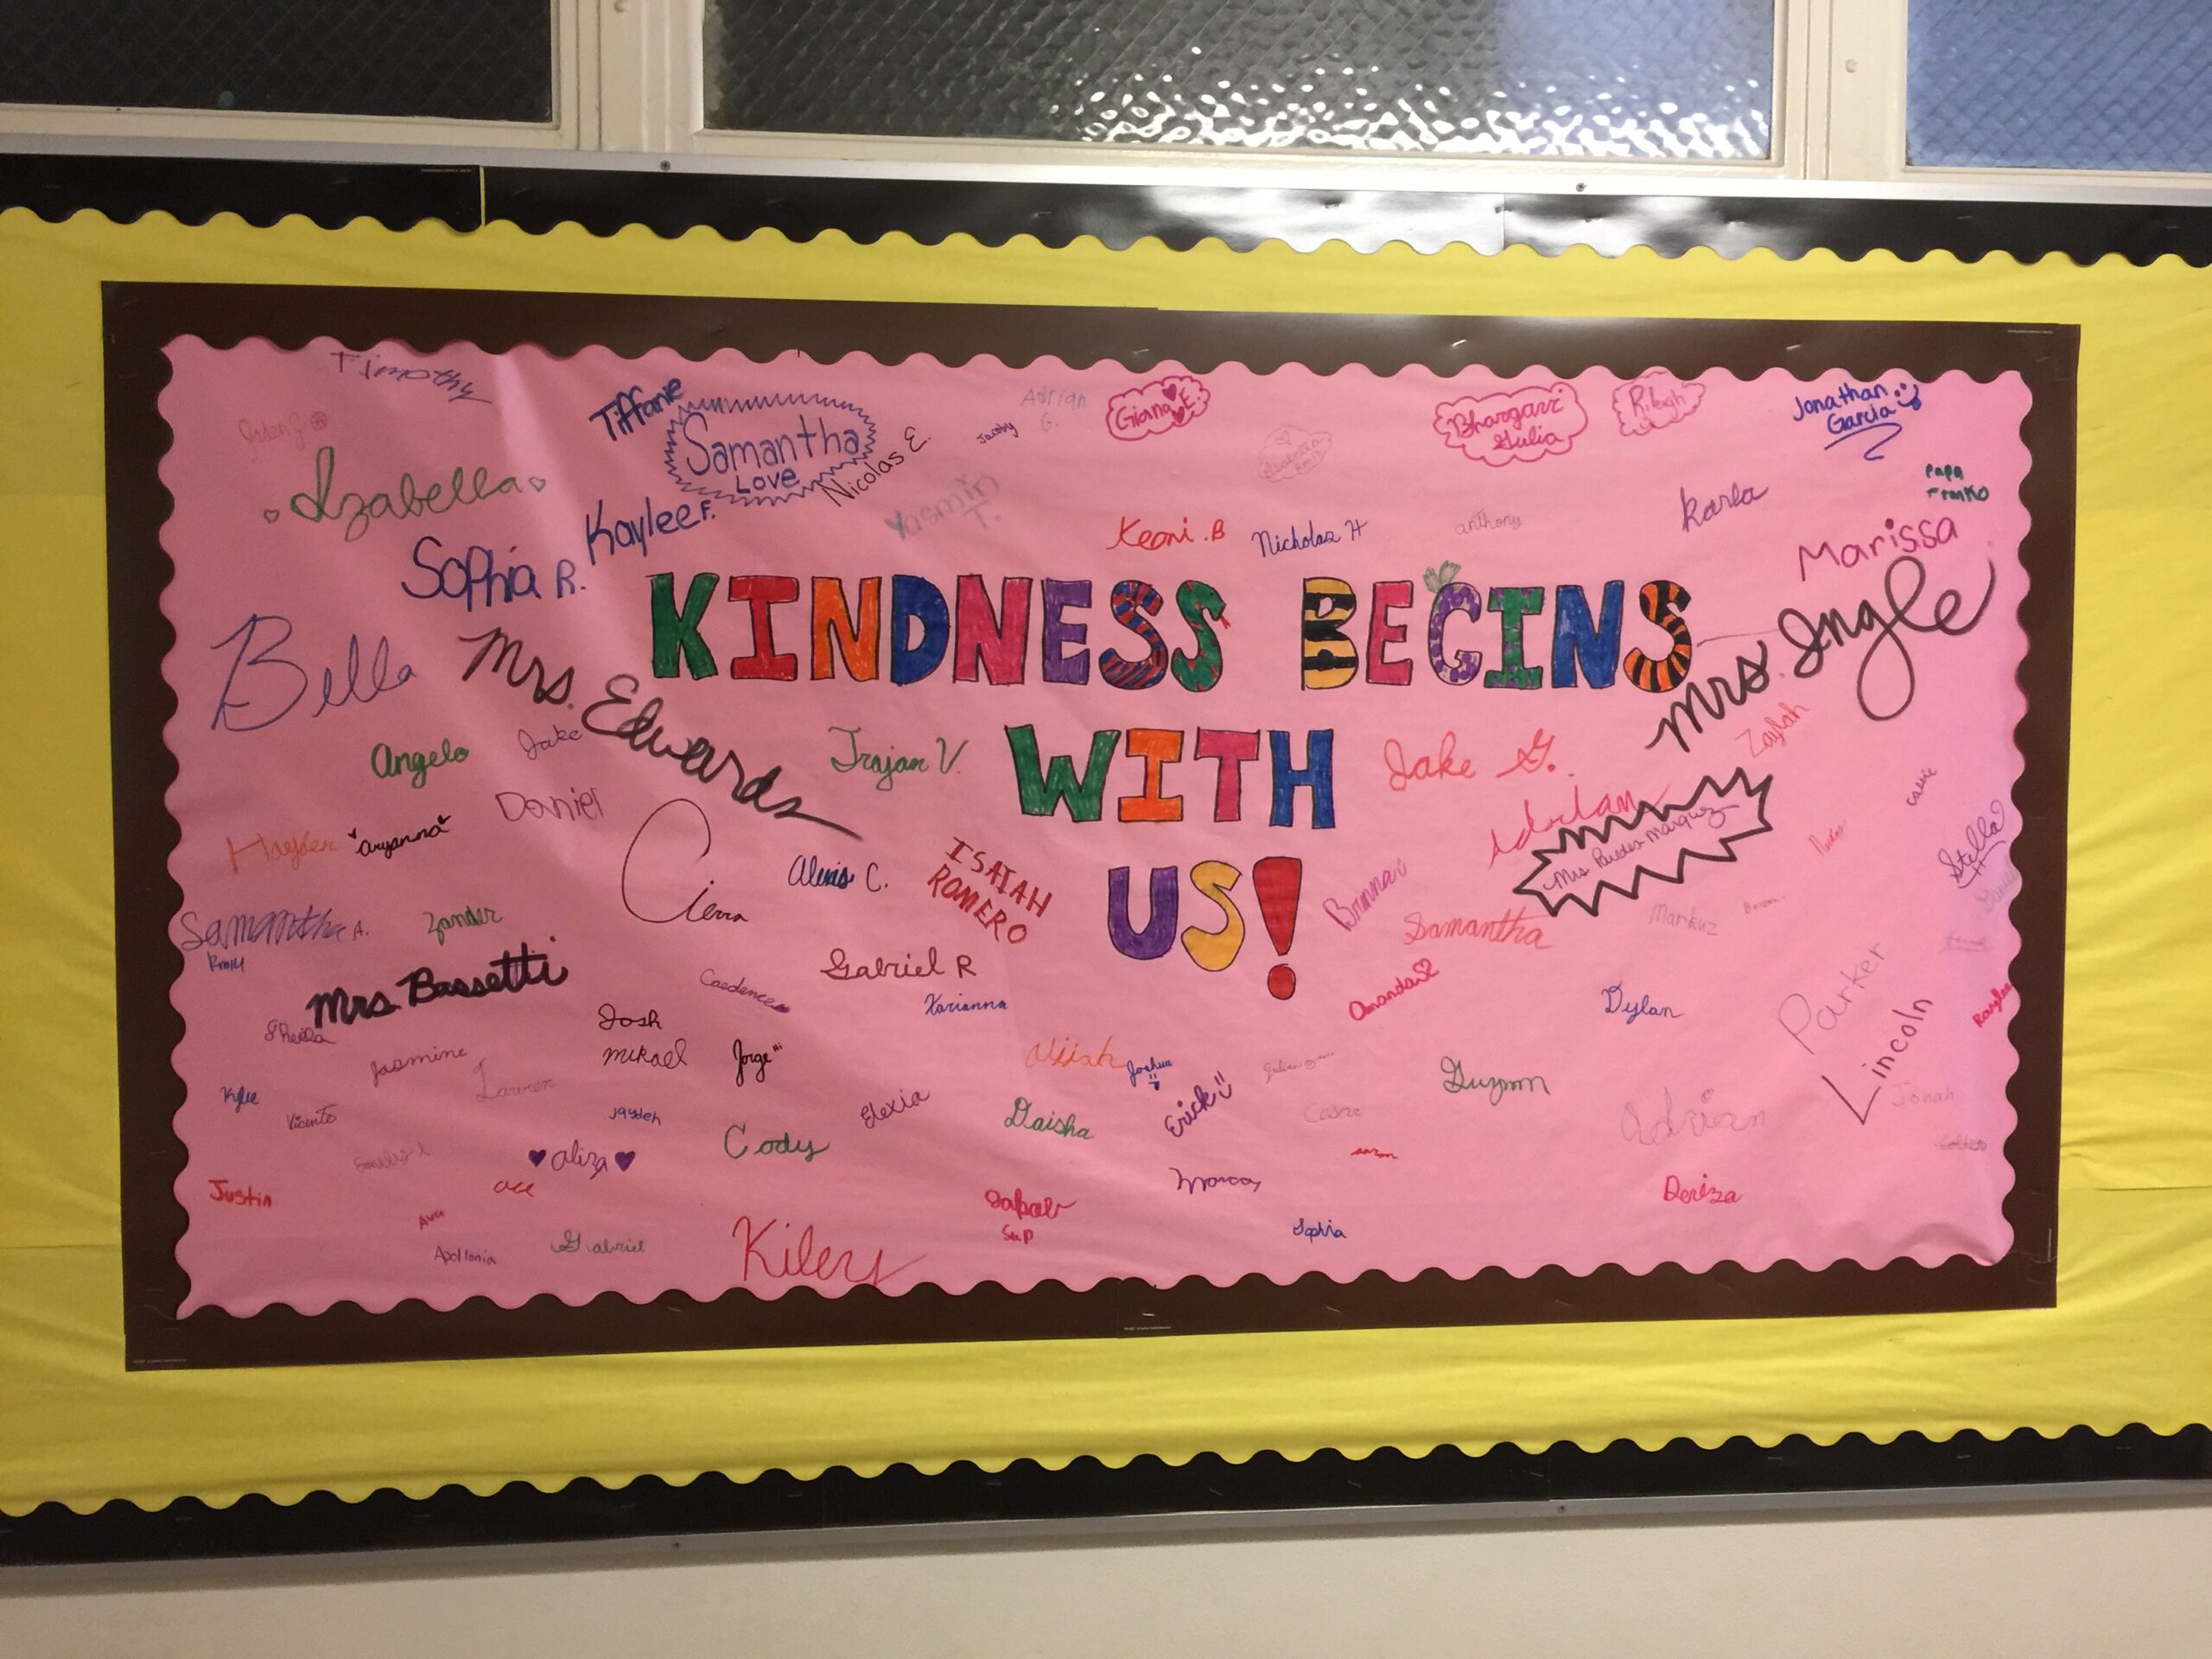 Timothy
Tiffanie
Samantha
Love
Nicolas E.
Jacoby
Adrian
G.
Giana E.
Bhargavi
Julia
Rileigh
Jonathan
Garcia
Izabella
Kaylee F.
Yasmin
T.
Keoni .B
Nicholas H
anthony
Karla
Papa
Franko
Marissa
Sophia R.
KINDNESS BEGINS
Mrs. Ingle
Bella
Mrs. Edwards
Angelo
Jake
Trajan V.
WITH
Jake G.
Zaylah
Daniel
Hayden
aryanna
Cierra
Alexis C.
ISAIAH
ROMERO
US!
Brianna
Mrs Paredes Marquez
Stella
Samantha A.
Rm14
Zander
Samantha
Markuz
Mrs. Bassetti
Caedence
Gabriel R
Karianna
Amanda
Dylan
Parker
Lincoln
Kaylee
Sheila
Josh
Jasmine
Lauren
mikael
Jorge
Alijah
Joshua
Julian
Guzman
Kylie
Vicente
Jayden
Elexia
Daisha
Erick
Cesar
Adrian
Jonah
aliza
Cody
aaron
Justin
Marcos
Deriza
Ava
Jakob
Sup
Apollonia
Gabriel
Kiley
Sophia